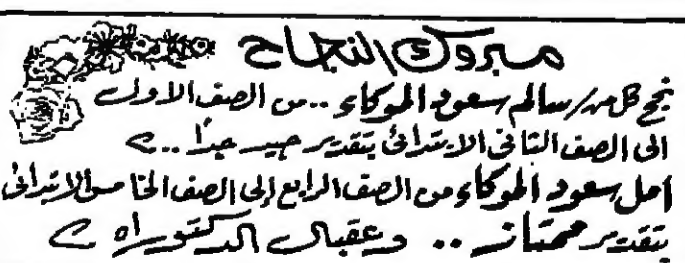 مبروك النجاح
نجح كل من / سالم سعود الموكاء .. من الصف الاول
الى الصف الثاني الابتدائي بتقدير جيد جدا ..
امل سعود الموكاء من الصف الرابع إلى الصف الخامس الابتدائى
بتقدير ممتاز .. وعقبال الدكتوراه